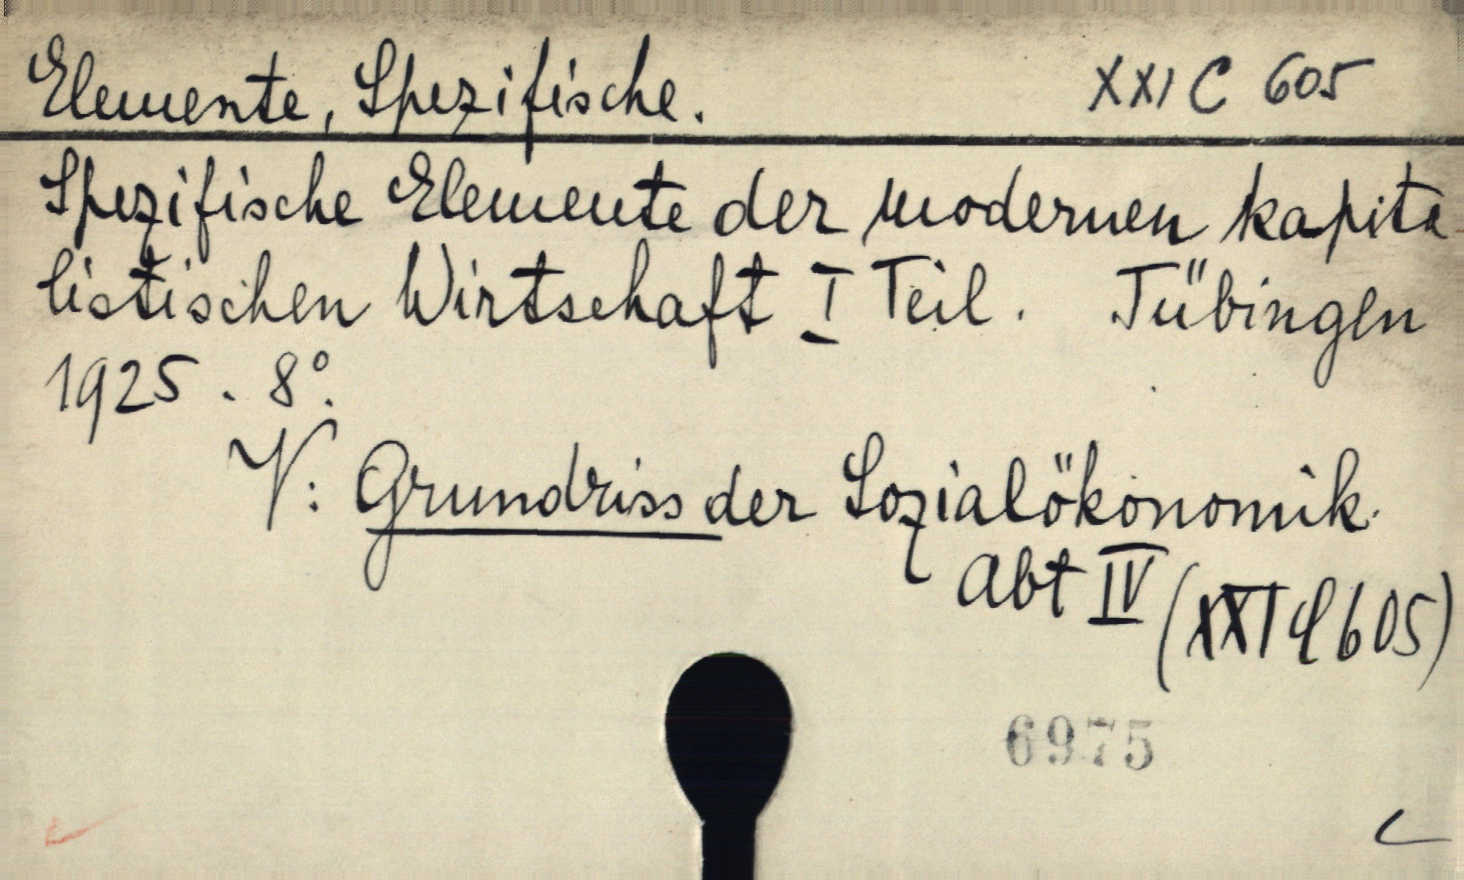 Elemente, Spezifische. XXI C 605
Spezifische Elemente der modernen kapita-
listischen Wirtschaft I Teil. Tübingen
1925. 8°.
V: Grundriss der Sozialökonomik.
Abt IV (XXI C 605)
6975